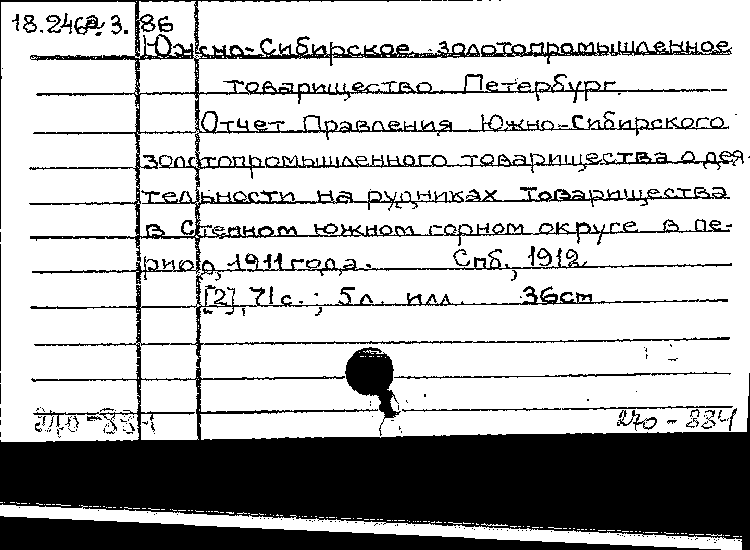 18.246а.3.86
Южно-Сибирское золотопромышленное
товарищество. Петербург.
Отчет Правления Южно-Сибирского
золотопромышленного товарищества о дея-
тельности на рудниках Товарищества
в Степном южном горном округе в пе-
риод 1911 года. Спб., 1912
[2], 71 с.; 5 л. илл. 36 cm
270-884 270-884